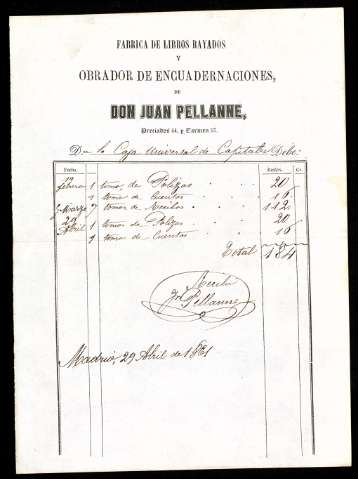 FABRICA DE LIBROS RAYADOS
Y
OBRADOR DE ENCUADERNACIONES,
DE
DON JUAN PELLANNE,
Preciados 54, y Carmen 37.
De la Caja Universal de Capitales Debe:
Fecha. Reales. Ct.
febrero 1 tomo, de Polizas 20
1 tomo de Cuentas 16
Marzo 7 tomos de Recibos 112
Abril 1 tomo de Polizas 20
1 tomo de Cuentas 16
Total 184
Recibi
Jn Pellanne
Madrid, 29 Abril de 1861